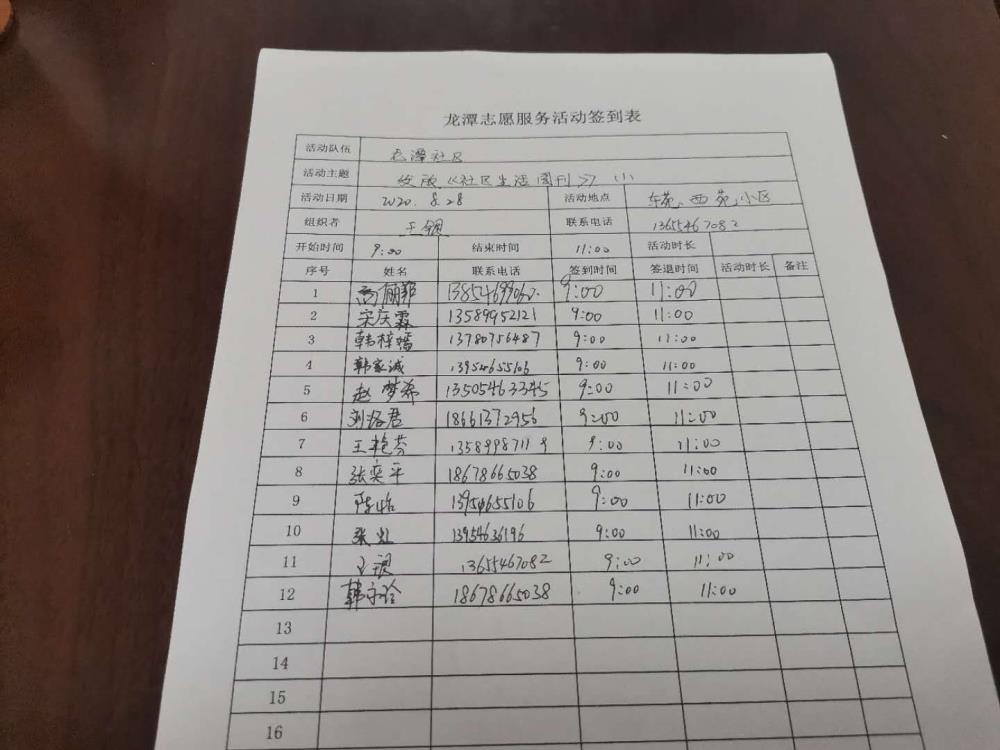 龙潭志愿服务活动签到表
活动队伍 龙潭社区
活动主题 发放《社区生活周刊》(1)
活动日期 2020.8.28 活动地点 东苑、西苑小区
组织者 王 联系电话 13655467082
开始时间 9:00 结束时间 11:00 活动时长
序号 姓名 联系电话 签到时间 签退时间 活动时长 备注
1 高丽郡 13854699060. 9:00 11:00
2 宋庆霖 13589952121 9:00 11:00
3 韩梓 13780756487 9:00 11:00
4 韩家诚 13954655106 9:00 11:00
5 赵梦希 13505463345 9:00 11:00
6 刘洺君 18661372956 9:00 11:00
7 王艳芬 13589987119 9:00 11:00
8 张奕平 18678665038 9:00 11:00
9 陈怡 13954655106 9:00 11:00
10 张虹 13954636196 9:00 11:00
11 王 13655467082 9:00 11:00
12 韩守玲 18678665038 9:00 11:00
13
14
15
16